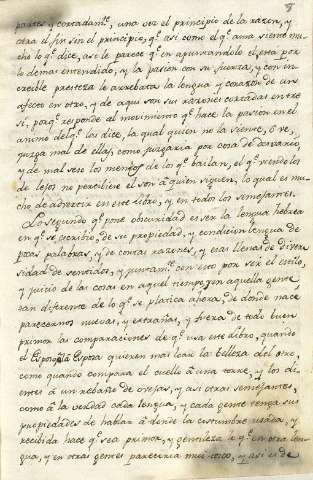 8
partes y cortadamte, una vez el principio de la razon, y
otra el fin sin el principio, qe asi como el qe ama siente mu-
cho lo qe dice, asi le parece qe en apuntandolo està por
lo demas entendido, y la pasion con su fuerza, y con in-
creible presteza le arrebata la lengua y corazon de un
afecto en otro, y de aqui son sus razones cortadas entre
sí, porqe responde al movimiento qe hace la pasion en el
animo del qe las dice, la qual quien no la siente, ò ve,
juzga mal de ellas, como juzgaria por cosa de desvario,
y de mal seso los meneos de los qe bailan, el qe viendolos
de lejos no percibiese el son à quien siguen, lo qual es mu-
cho de advertir en este libro, y en todos los semejantes.
Lo segundo qe pone obscuridad es ser la lengua hebrea
en qe se escribiò, de su propiedad, y condicion lengua de
pocas palabras, y de cortas razones, y esas llenas de diver-
sidad de sentidos, y juntamte con esto por ser el estilo,
y juicio de las cosas en aquel tiempo, y en aquella gente
tan diferente de lo qe se platica ahora, de donde nace
parecernos nuevas, y extrañas, y fuera de todo buen
primor las comparaciones de qe usa este libro, quando
el Esposo, ò la Esposa quieren mas loar la belleza del otro,
como quando compara el cuello à una torre, y los di-
entes à un rebaño de ovejas, y asi otras semejantes,
como à la verdad cada lengua, y cada gente tenga sus
propiedades de hablar à donde la costumbre usada, y
recibida hace qe sea primor, y gentileza lo qe en otra len-
gua, y en otras gentes pareceria mui tosco, y asi es de